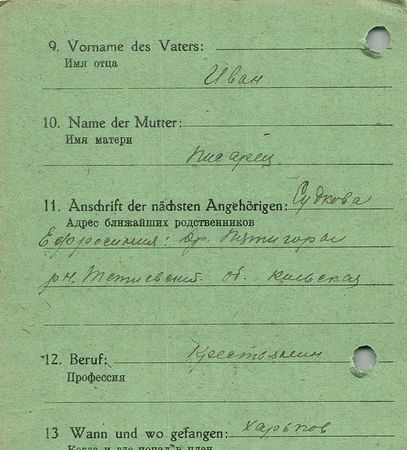 9. Vorname des Vaters:
Имя отца
Иван
10. Name der Mutter:
Имя матери
Писарец.
11. Anschrift der nächsten Angehörigen: Судкова
Адрес ближайших родственников
Ефросиния: Др. Пятигоры
рн. Тетиевский. об. киевская
12. Beruf: Крестьянин
Профессия
13 Wann und wo gefangen: Харьков
Когда и где попал в плен